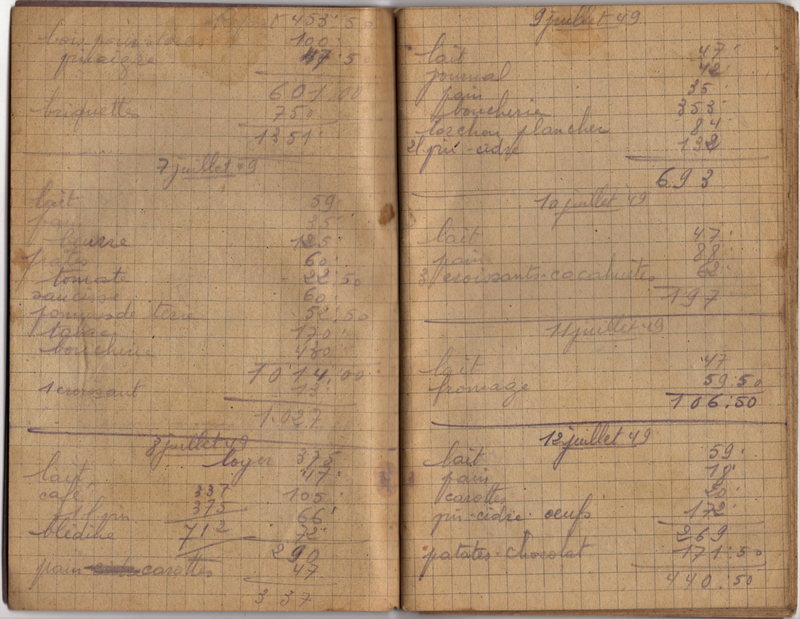 453.50
bois 100.
vinaigre 47.50
601.00
briquettes 750
1351.
7 juillet 49
lait 59.
pain 35.
beurre 125.
pâtes 60.
tomate 22.50
saucisse 60.
pommes de terre 52.50
tabac 170.
boucherie 430
1014.00
1 croissant 13.
1.027
8 juillet 49
loyer 375
lait 47.
café 337 105.
375 66.
blédine 712 72.
290
pain carottes 47
337
9 juillet 49
lait 47.
journal 42.
pain 35.
boucherie 353.
torchon plancher 84.
2l vin - cidre 132
693
10 juillet 49
lait 47.
pain 88.
3 croissants - cacahuètes 62.
197
11 juillet 49
lait 47
fromage 59.50
106.50
12 juillet 49
lait 59.
pain 18.
carottes 20.
vin - cidre - oeufs 172.
269
patates - chocolat 171.50
440.50